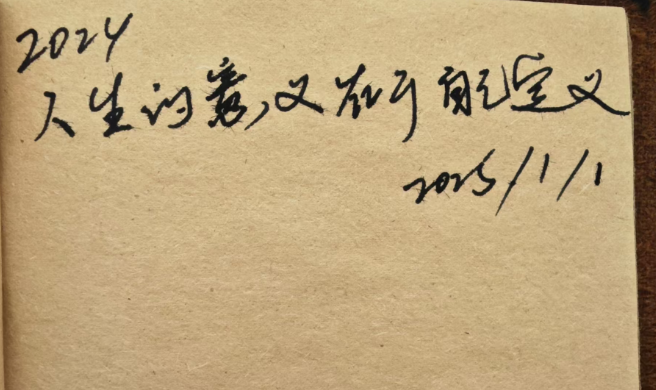 2024
人生的意义在于自己定义
2025/1/1